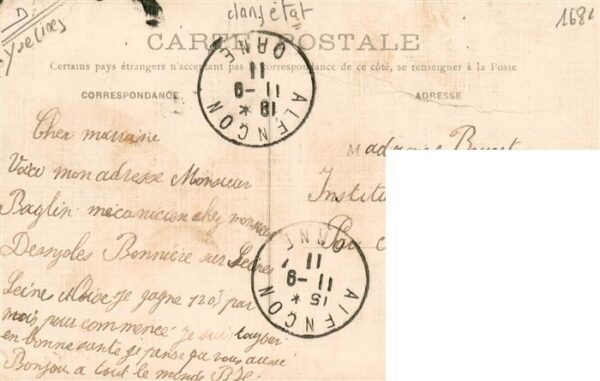 D
Yvelines
dans état
1681
CARTE POSTALE
Certains pays étrangers n'acceptant pas la correspondance de ce côté, se renseigner à la Poste
CORRESPONDANCE
ADRESSE
ALENÇON
ORNE
18 *
11 - 9
11
Cher marraine
Voici mon adresse Monsieur
Baglin mécanicien chez monsieur
Bonnière sur Seine
Seine et Oise je gagne 120f par
mois pour commencé je suis toujour
en bonne santé je pense que vous aussi
Bonjour a tout le monde
Madame
Institu
ALENÇON
ORNE
15 *
11 - 9
11